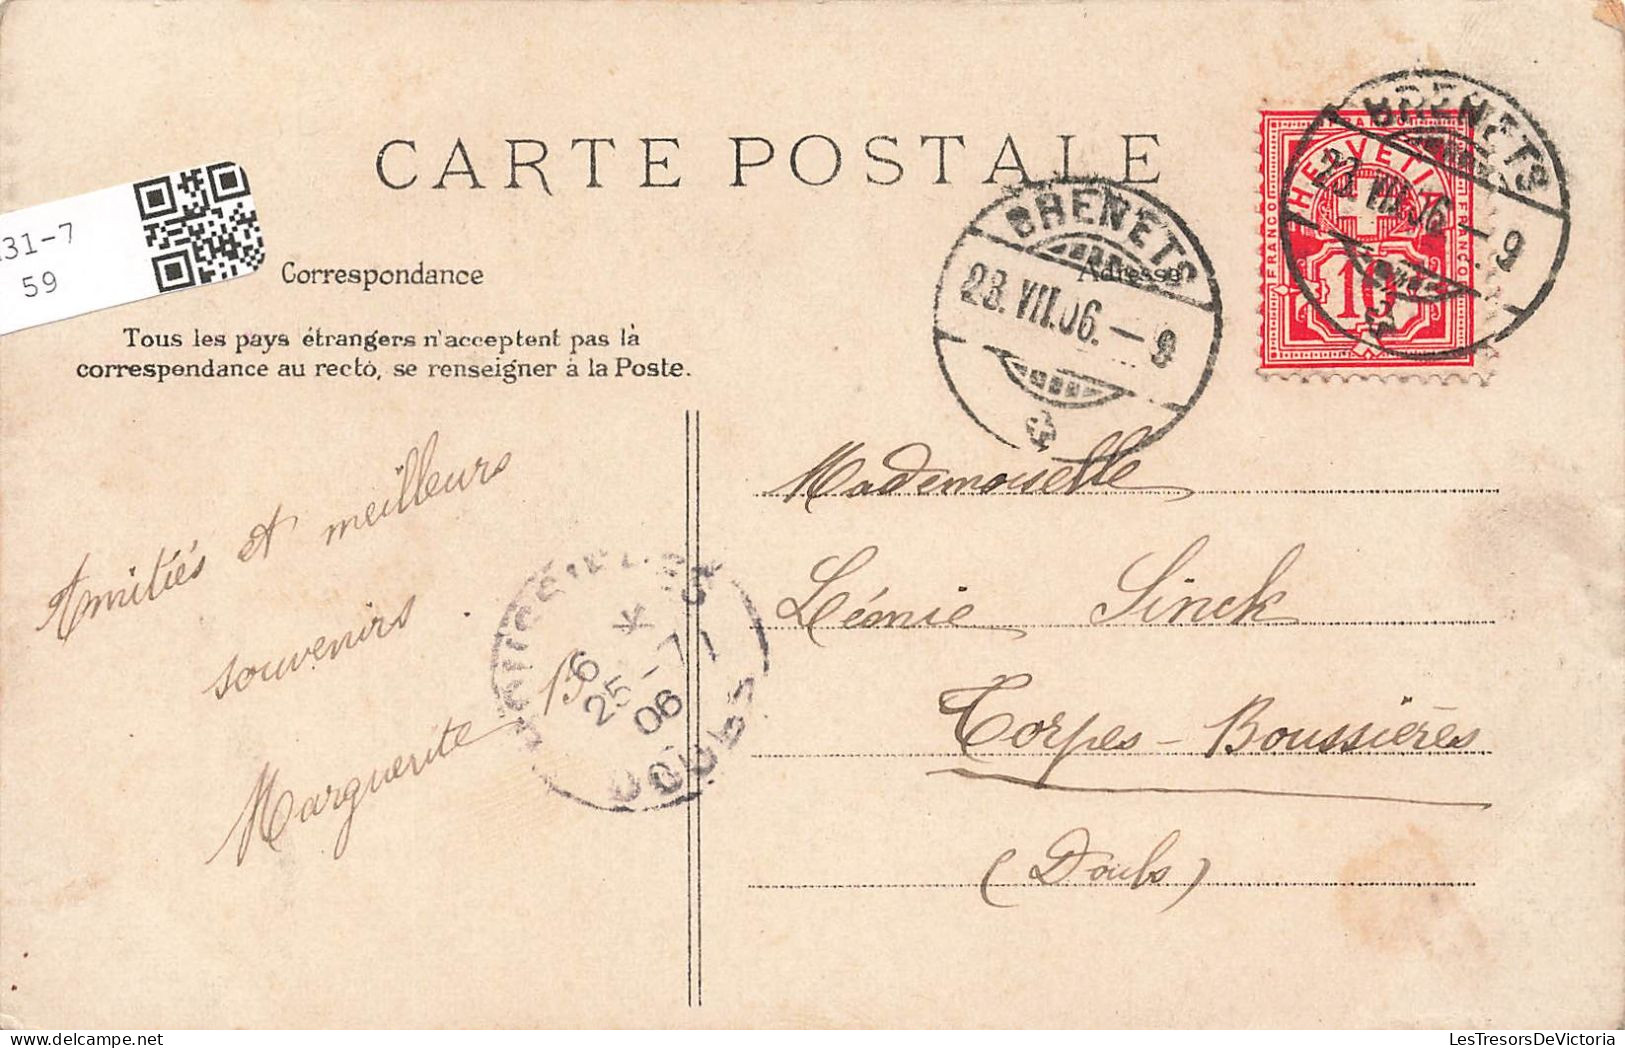 CARTE POSTALE
31-7
59
Correspondance
Adresse
Tous les pays étrangers n'acceptent pas la
correspondance au recto, se renseigner à la Poste.
BRENETS
23. VII. 06. - 9
BRENETS
23. VII. 06 - 9
HELVETIA
FRANCO
FRANCO
10
Amitiés et meilleurs
souvenirs
Marguerite B
6
25 - 7
06
DOUBS
Mademoiselle
Léonie Sinck
Torpes - Boussières
(Doubs)
LesTresorsDeVictoria